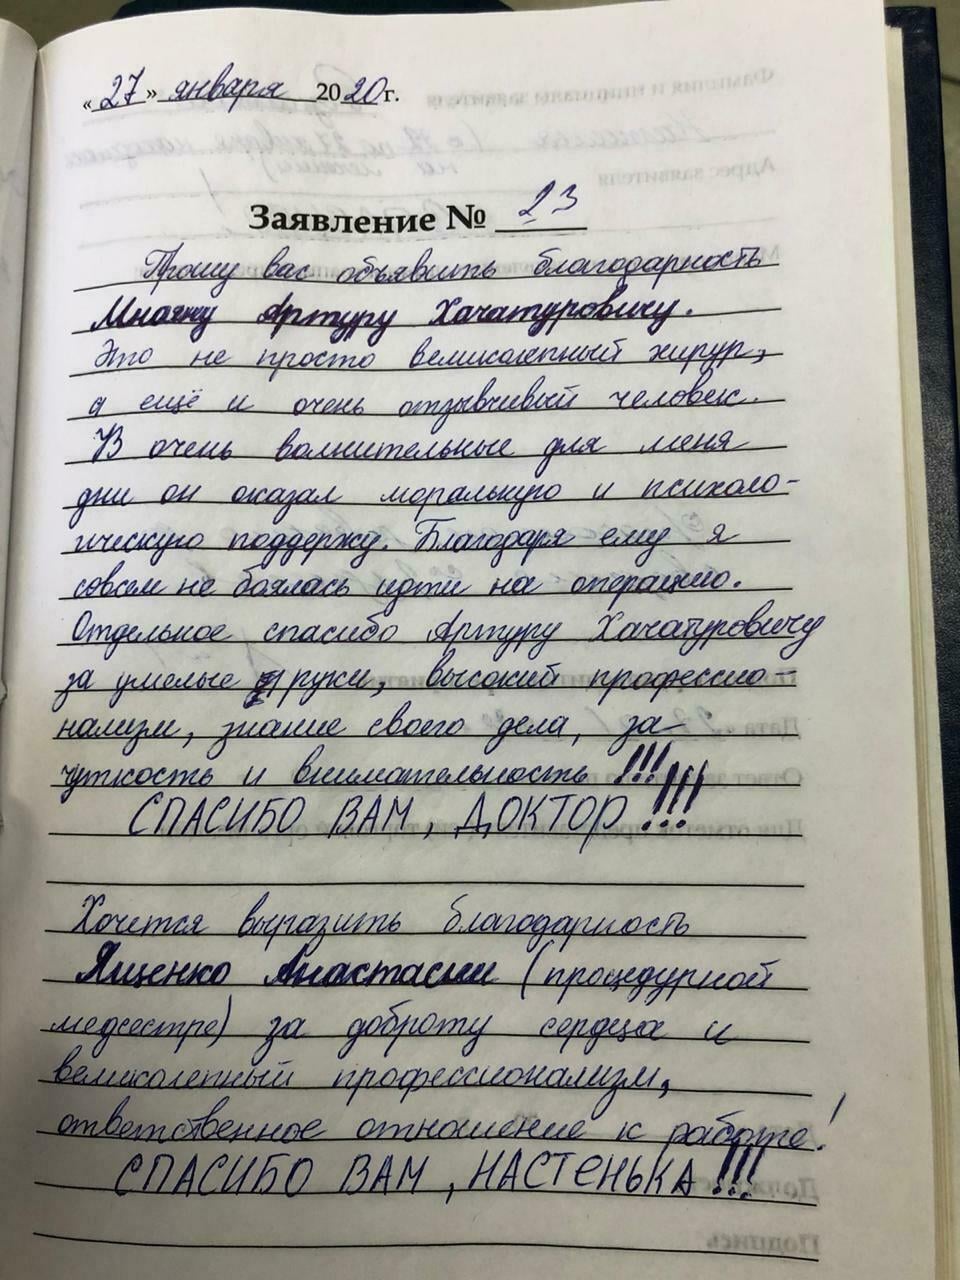 «27» января 2020 г.
Заявление № 23
Прошу вас объявить благодарность
Мнаяну Артуру Хачатуровичу.
Это не просто великолепный хирург,
а ещё и очень отзывчивый человек.
В очень волнительные для меня
дни он оказал моральную и психоло-
гическую поддержу. Благодаря ему я
совсем не боялась идти на операцию.
Отдельное спасибо Артуру Хачатуровичу
за умелые руки, высокий профессио-
нализм, знание своего дела, за
чуткость и внимательность !!!
СПАСИБО ВАМ, ДОКТОР !!!
Хочется выразить благодарность
Ященко Анастасии (процедурной
медсестре) за доброту сердца и
великолепный профессионализм,
ответственное отношение к работе!
СПАСИБО ВАМ, НАСТЕНЬКА !!!